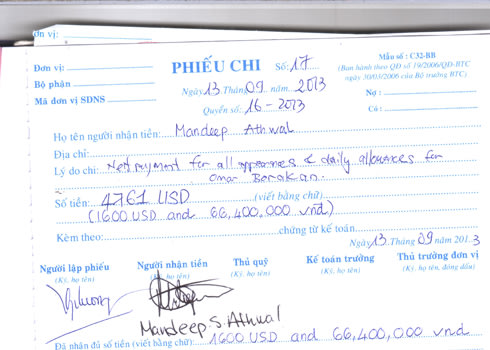 Đơn vị:
Đơn vị:
Bộ phận
Mã đơn vị SDNS
PHIẾU CHI Số: 17
Ngày 13 Tháng 09 năm 2013
Quyển số: 16 - 2013
Mẫu số : C32-BB
(Ban hành theo QĐ số 19/2006/QĐ-BTC
ngày 30/03/2006 của Bộ trưởng BTC)
Nợ :
Có :
Họ tên người nhận tiền: Mandeep Athwal
Địa chỉ:
Lý do chi: Net payment for all & daily allowances for
Omar
Số tiền: 4761 USD (viết bằng chữ)
(1600 USD and 66,400,000 vnd)
Kèm theo: chứng từ kế toán
Ngày 13 Tháng 09 năm 2013
Người lập phiếu Người nhận tiền Thủ quỹ Kế toán trưởng Thủ trưởng đơn vị
(Ký, họ tên) (Ký, họ tên) (Ký, họ tên) (Ký, họ tên) (Ký, họ tên, đóng dấu)
Mandeep.S.Athwal
Đã nhận đủ số tiền (viết bằng chữ): 1600 USD and 66,400,000 vnd